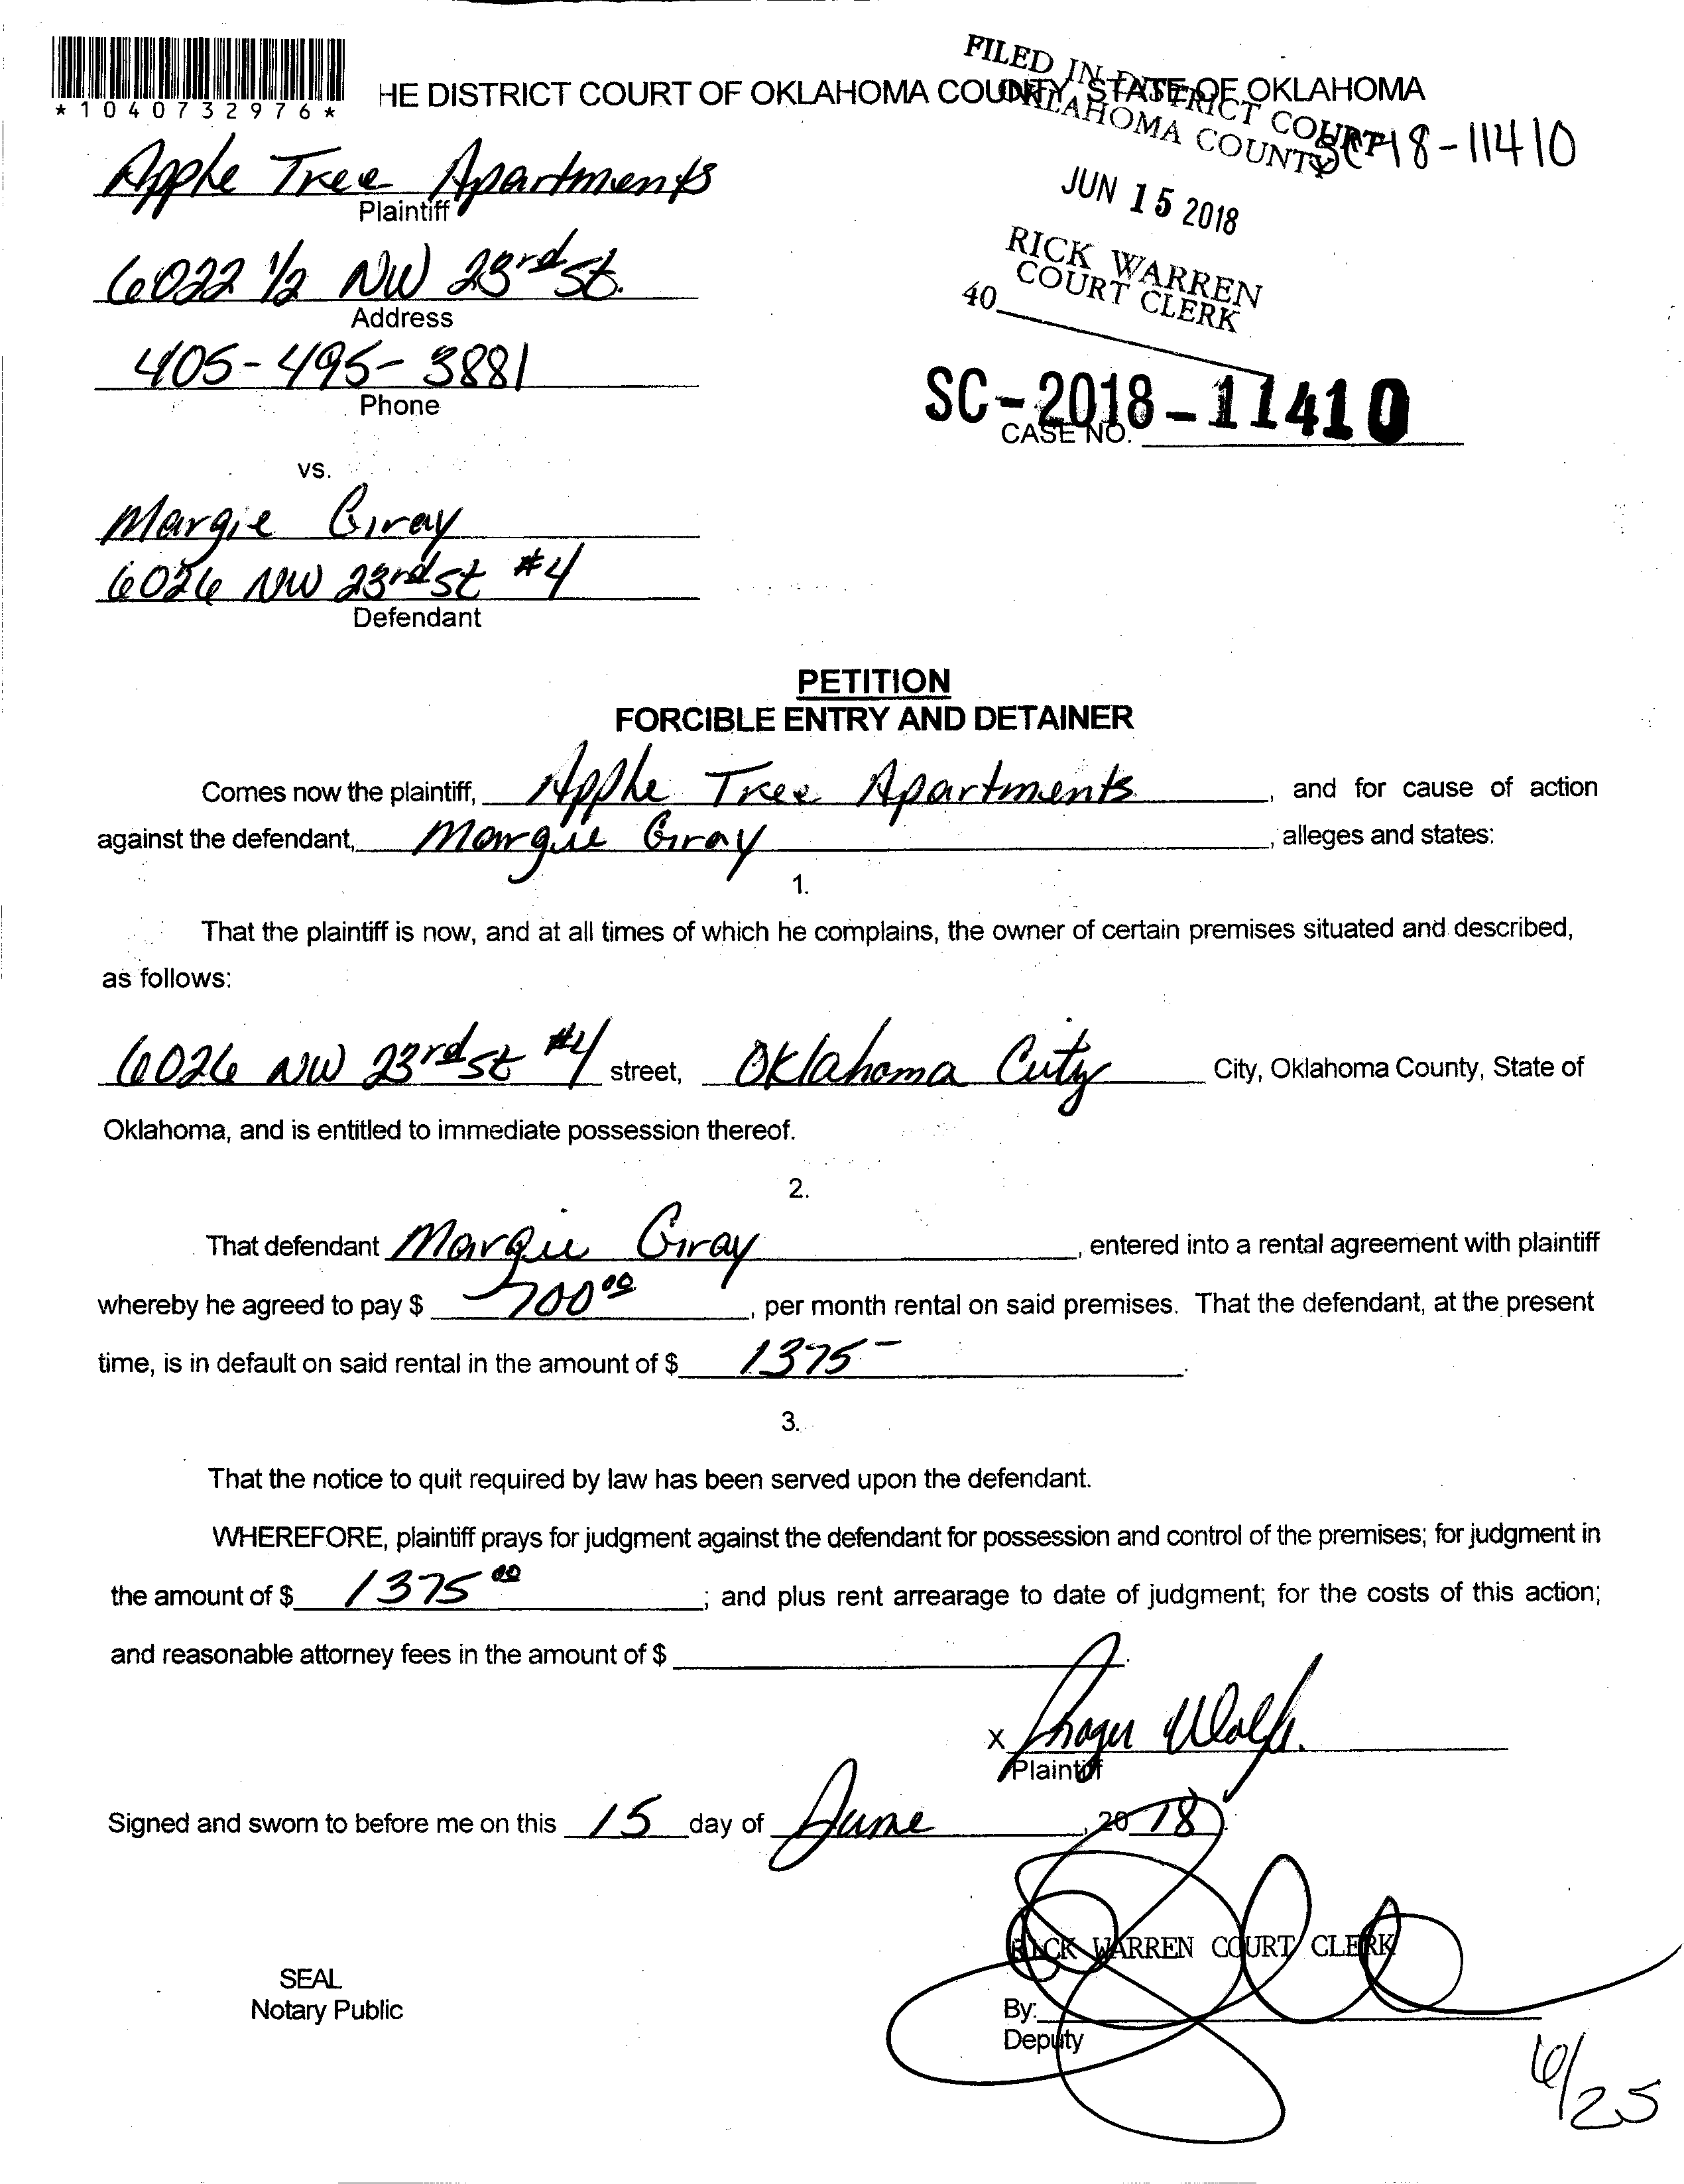 *1040732976*
HE DISTRICT COURT OF OKLAHOMA COUNTY, STATE OF OKLAHOMA
FILED IN DISTRICT COURT
OKLAHOMA COUNTY
SC-18-11410
JUN 15 2018
RICK WARREN
COURT CLERK
40
Apple Tree Apartments
Plaintiff
6022 1/2 NW 23rd St.
Address
405-495-3881
Phone
SC-2018-11410
CASE NO.
vs.
Margie Gray
6026 NW 23rd st #4
Defendant
PETITION
FORCIBLE ENTRY AND DETAINER
Comes now the plaintiff, Apple Tree Apartments, and for cause of action
against the defendant, Margie Gray, alleges and states:
1.
That the plaintiff is now, and at all times of which he complains, the owner of certain premises situated and described,
as follows:
6026 NW 23rd st #4 street, Oklahoma City City, Oklahoma County, State of
Oklahoma, and is entitled to immediate possession thereof.
2.
That defendant Margie Gray, entered into a rental agreement with plaintiff
whereby he agreed to pay $ 700 00, per month rental on said premises. That the defendant, at the present
time, is in default on said rental in the amount of $ 1375 -.
3.
That the notice to quit required by law has been served upon the defendant.
WHEREFORE, plaintiff prays for judgment against the defendant for possession and control of the premises; for judgment in
the amount of $ 1375 00; and plus rent arrearage to date of judgment; for the costs of this action;
and reasonable attorney fees in the amount of $
X Wolfe
Plaintiff
Signed and sworn to before me on this 15 day of June, 2018.
RICK WARREN COURT CLERK
SEAL
Notary Public
By:
Deputy
6/25